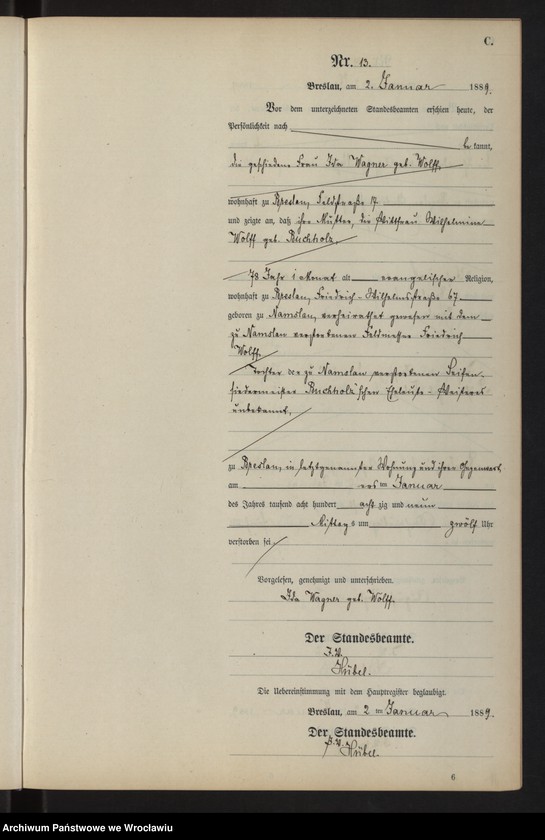 C.
Nr. 13.
Breslau, am 2. Januar 1889.
Vor dem unterzeichneten Standesbeamten erschien heute, der
Persönlichkeit nach
be kannt,
die geschiedene Frau Ida Wagner geb. Wolff,
wohnhaft zu Breslau, Feldstraße 17
und zeigte an, daß ihre Mutter, die Wittfrau Wilhelmine
Wolff geb. Buchholz,
78 Jahr 1 Monat alt evangelischer Religion,
wohnhaft zu Breslau, Friedrich-Wilhelmstraße 67
geboren zu Namslau, verheirathet gewesen mit dem
zu Namslau verstorbenen Feldmesser Friedrich
Wolff,
Tochter der zu Namslau verstorbenen Seifen-
siedermeister Buchholz'schen Eheleute - Weiteres
unbekannt,
zu Breslau, in letztgenannter Wohnung und ihrer Gegenwart
am ersten Januar
des Jahres tausend acht hundert acht zig und neun
Mittags um zwölf Uhr
verstorben sei.
Vorgelesen, genehmigt und unterschrieben.
Ida Wagner geb. Wolff.
Der Standesbeamte.
I.V.
Hübel.
Die Uebereinstimmung mit dem Hauptregister beglaubigt.
Breslau, am 2 ten Januar 1889.
Der Standesbeamte.
I.V. Hübel.
6
Archiwum Państwowe we Wrocławiu